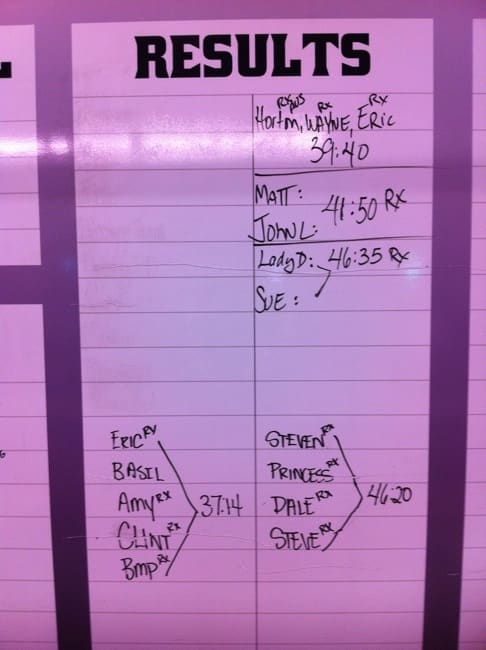 RESULTS
Rx Rx Rx
Hortin, WAYNE, Eric
39:40
MATT:
41:50 Rx
JOHN L:
LadyD: 46:35 Rx
SUE:
ERIC RX
BASIL
Amy RX
37:14
CLINT RX
Bmp RX
STEVEN RX
PRINCESS RX
DALE RX
46:20
STEVE RX